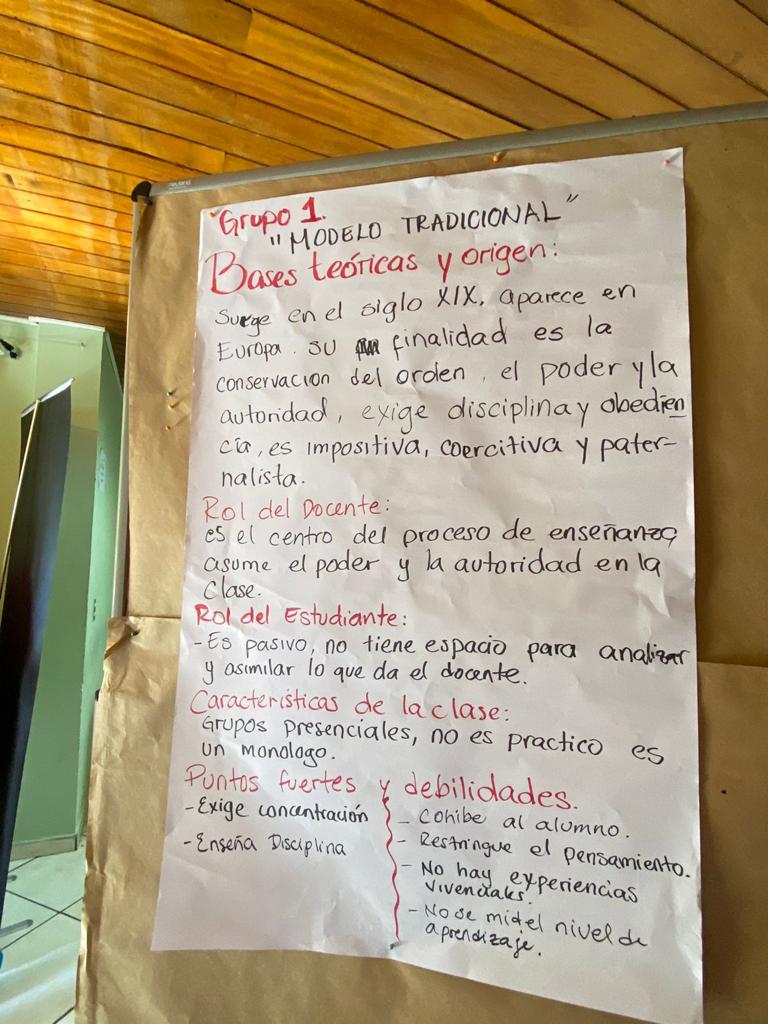 Grupo 1.
"MODELO TRADICIONAL"
Bases teóricas y origen:
Surge en el siglo XIX, aparece en
Europa. su finalidad es la
conservacion del orden, el poder y la
autoridad, exige disciplina y obedien
cia, es impositiva, coercitiva y pater-
nalista.
Rol del Docente:
es el centro del proceso de enseñanza
asume el poder y la autoridad en la
clase.
Rol del Estudiante:
-Es pasivo, no tiene espacio para analizar
y asimilar lo que da el docente.
Características de la clase:
Grupos presenciales, no es practico es
un monologo.
Puntos fuertes y debilidades.
-Exige concentración
-Enseña Disciplina
- Cohibe al alumno.
- Restringue el pensamiento.
- No hay experiencias
vivenciales.
- No se mide el nivel de
aprendizaje.